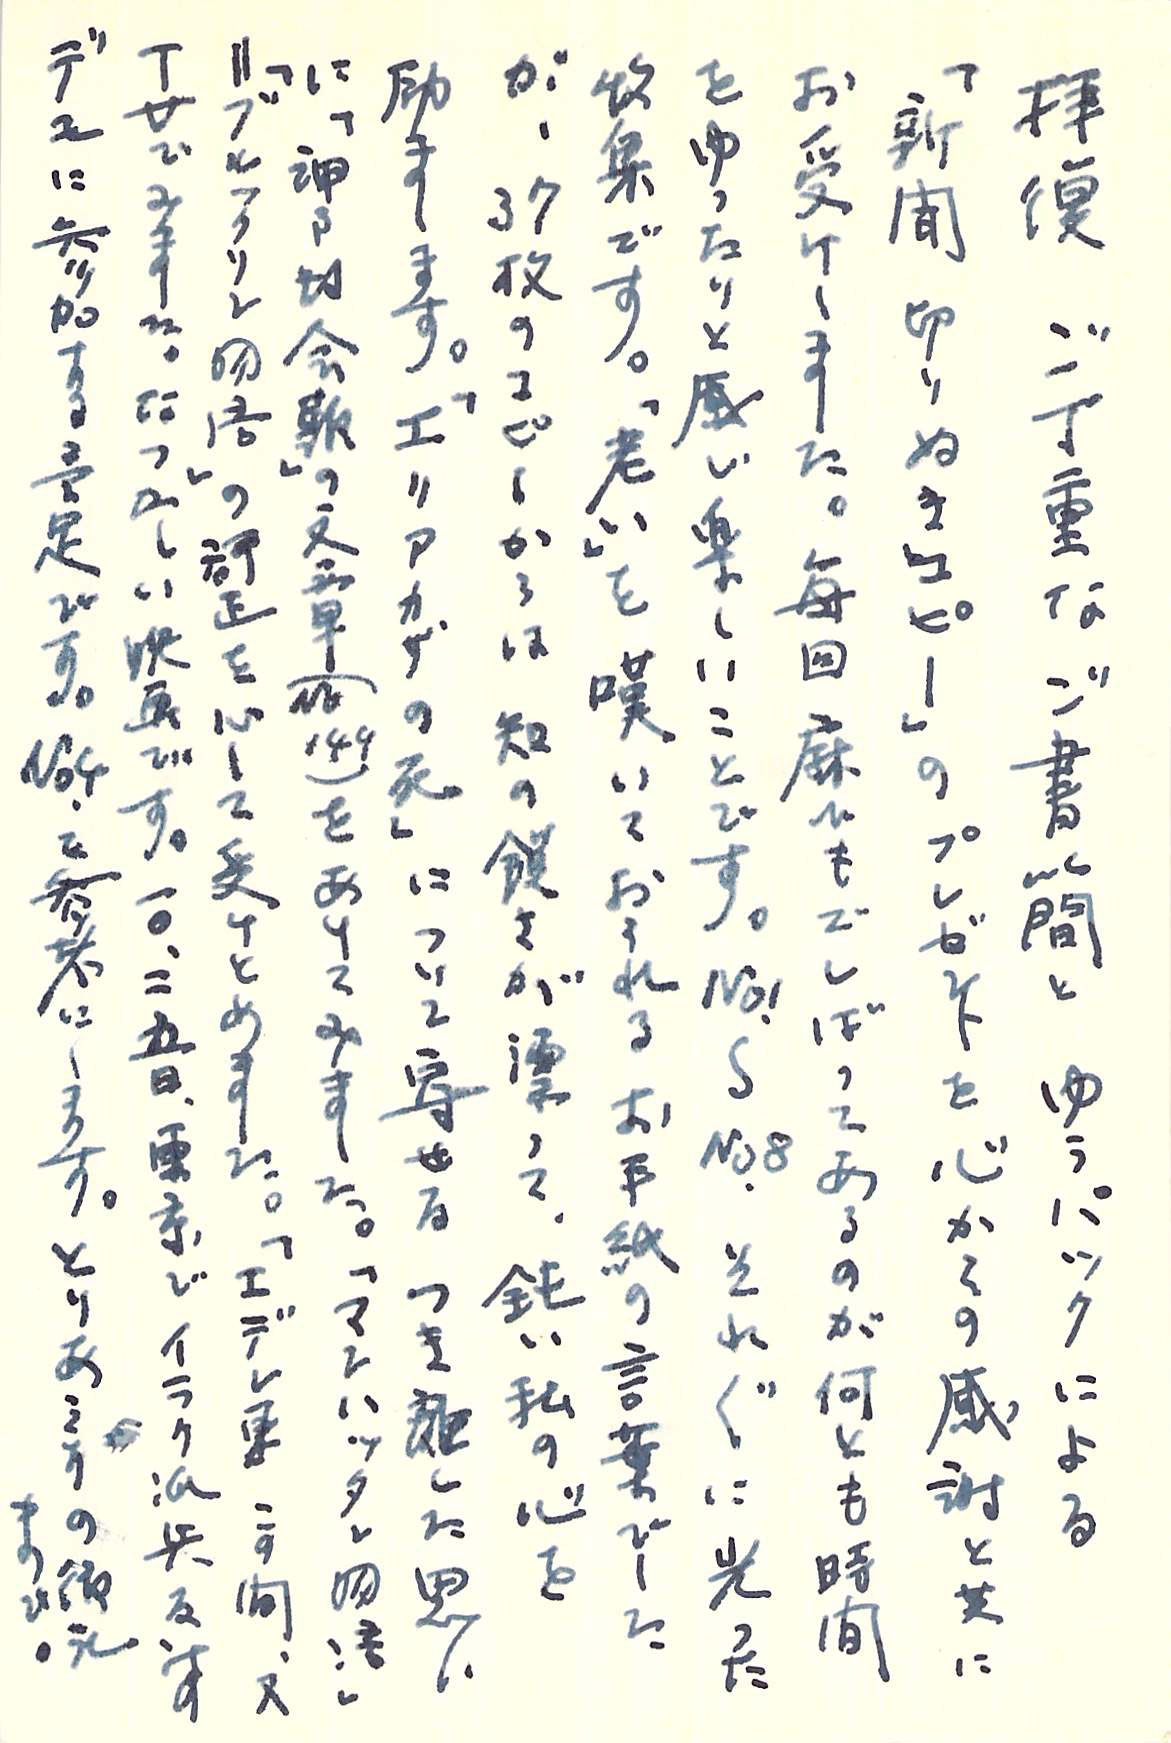 拝復 ご丁重なご書簡と ゆうパックによる
「新聞 切りぬきコピー」のプレゼントを心からの感謝と共に
お受けしました。毎回 麻ヒモでしばってあるのが何とも時間
をゆったりと感じ楽しいことです。No.1〜No.8. それぞれに光った
収集です。「老い」を嘆いておられるお手紙の言葉でした
が、37枚のコピーからは 知の鋭さが漂って、鈍い私の心を
励まします。「エリアカザンの死」について寄せる つき離した思い
に「神戸 会報」の文章(No.144)をあけてみました。「マンハッタン物語」
=「ブルックリン物語」の訂正を心して受けとめました。「エデンの東 の間、又
丁せでみました。なつかしい映画です。一〇、二五日、東京でイラク派兵反対
デモに参加する予定です。No.4.を参考にします。とりあえずの御礼
まで。